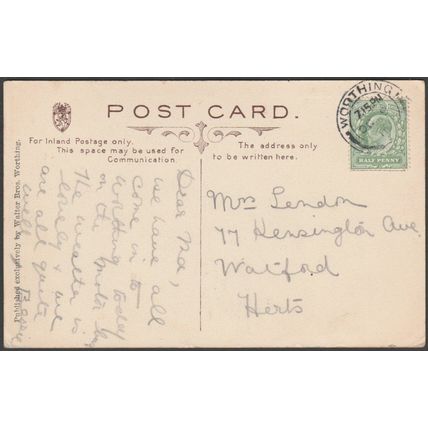 POST CARD.
For Inland Postage only.
This space may be used for
Communication.
The address only
to be written here.
WORTHING
7.15 PM
HALF PENNY
Published exclusively by Walter Bros. Worthing.
Dear Ma,
we have all
come in to
Worthing today
on the motor bus
The weather is
lovely & we
are all quite
well
Mrs Lendon
77 Kensington Ave
Watford
Herts